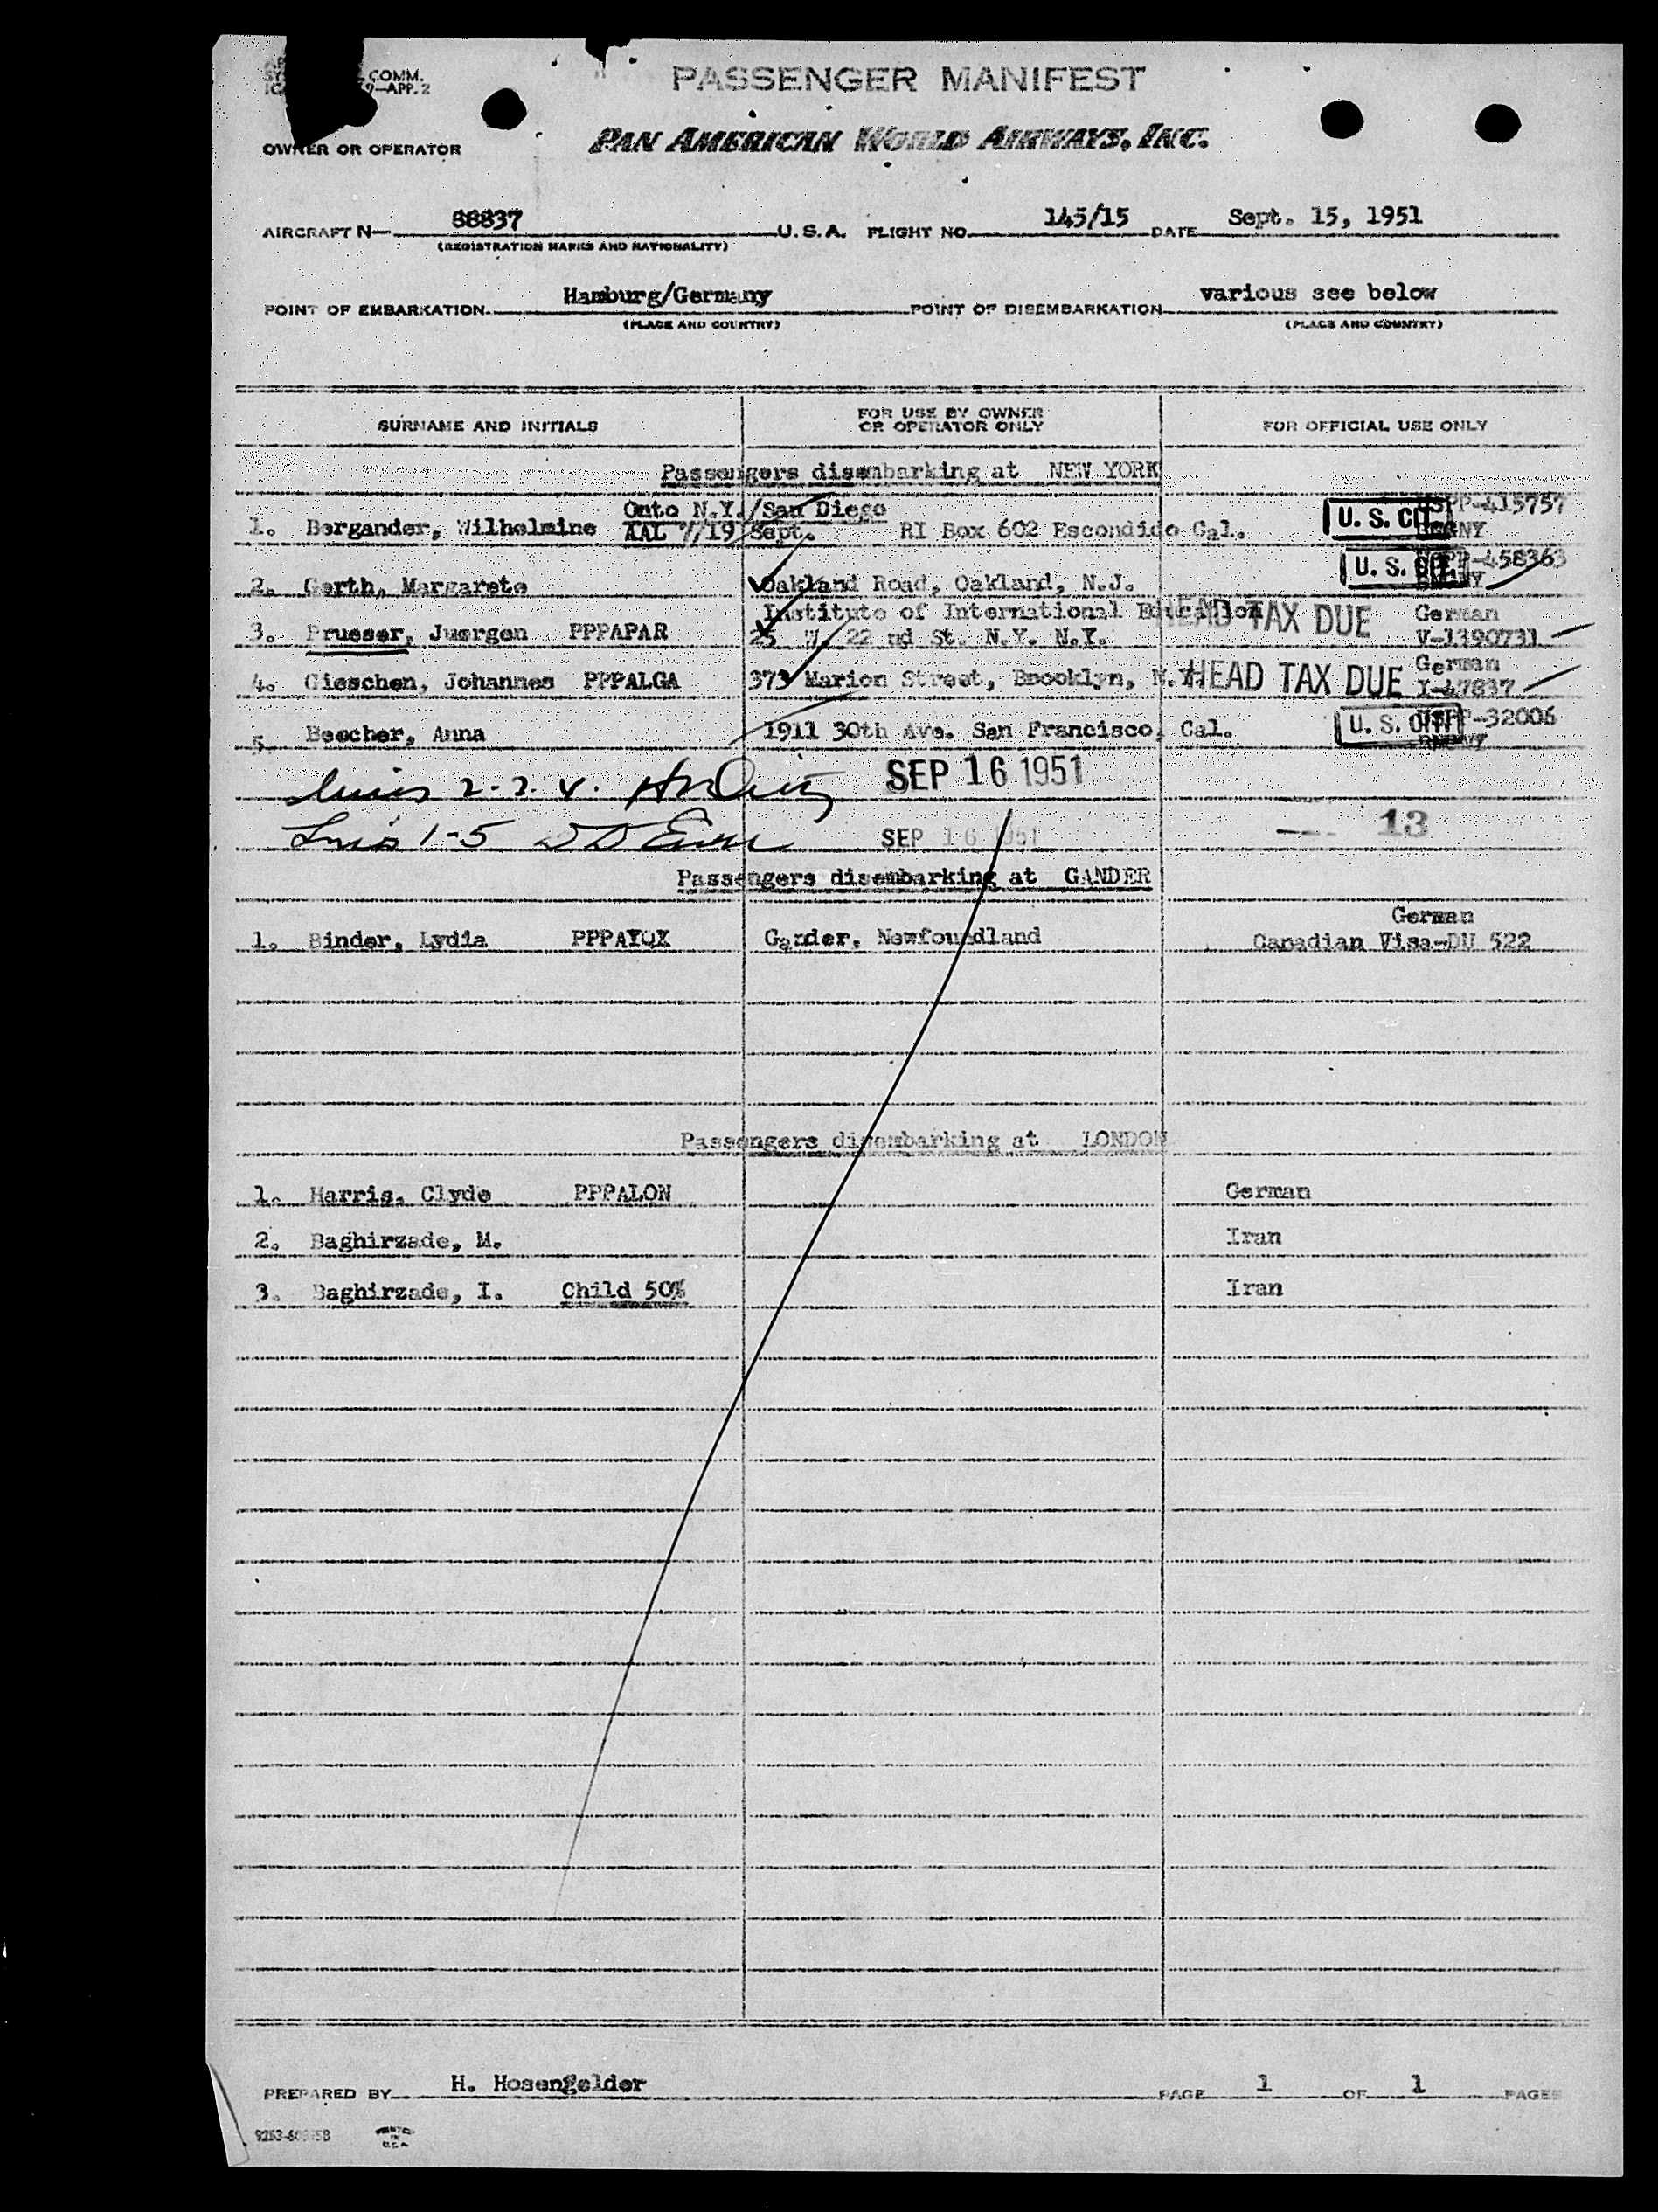 COMM.
9—APP. 2
PASSENGER MANIFEST
OWNER OR OPERATOR PAN AMERICAN WORLD AIRWAYS, INC.
AIRCRAFT N— 88837 U.S.A. FLIGHT NO. 145/15 DATE Sept. 15, 1951
(REGISTRATION MARKS AND NATIONALITY)
POINT OF EMBARKATION Hamburg/Germany POINT OF DISEMBARKATION various see below
(PLACE AND COUNTRY) (PLACE AND COUNTRY)
SURNAME AND INITIALS FOR USE BY OWNER OR OPERATOR ONLY FOR OFFICIAL USE ONLY
Passengers disembarking at NEW YORK
Onto N.Y./San Diego USPP-415757
1. Bergander, Wilhelmine AAL 7/19 Sept. RI Box 602 Escondido Cal. U. S. CIT.
-458363
2. Gerth, Margarete Oakland Road, Oakland, N.J. U. S. CIT.
Institute of International Education HEAD TAX DUE German
3. Prueser, Juergen PPPAPAR 25 W. 22 nd St. N.Y. N.Y. V-1390731
German
4. Gieschen, Johannes PPPALGA 373 Marion Street, Brooklyn, N.Y. HEAD TAX DUE I-47837
5. Beecher, Anna 1911 30th Ave. San Francisco, Cal. U. S. CIT. -32006
SEP 16 1951
1-5 SEP 16 1951 13
Passengers disembarking at GANDER
German
1. Binder, Lydia PPPAYQX Gander, Newfoundland Canadian Visa-DU 522
Passengers disembarking at LONDON
1. Harris, Clyde PPPALON German
2. Baghirzade, M. Iran
3. Baghirzade, I. Child 50% Iran
PREPARED BY H. Hosengelder PAGE 1 OF 1 PAGES
PRINTED
IN
U.S.A.